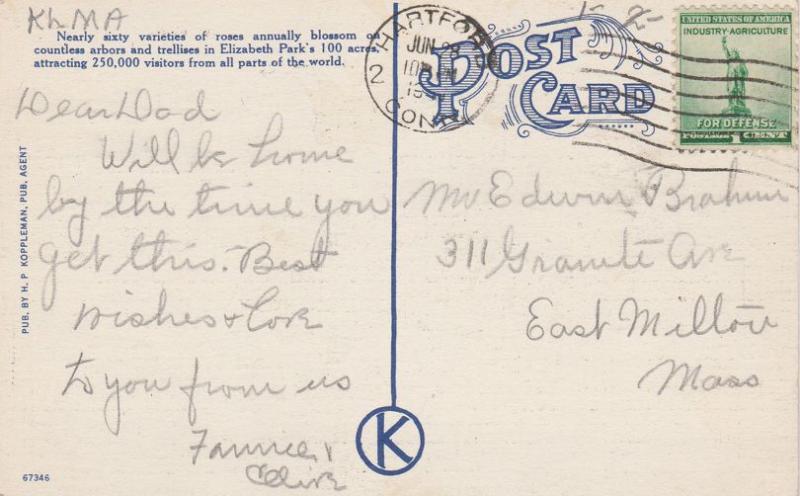 KLMA
Nearly sixty varieties of roses annually blossom on
countless arbors and trellises in Elizabeth Park's 100 acres,
attracting 250,000 visitors from all parts of the world.
POST
CARD
HARTFORD
JUN 28
2
CONN
UNITED STATES OF AMERICA
INDUSTRY·AGRICULTURE
FOR DEFENSE
1 CENT
Dear Dad
Will be home
by the time you
get this. Best
wishes & Love
to you from us
&
Mr Edwin
311 Granite Ave
East Milton
Mass
PUB. BY H. P. KOPPLEMAN, PUB. AGENT
K
67346